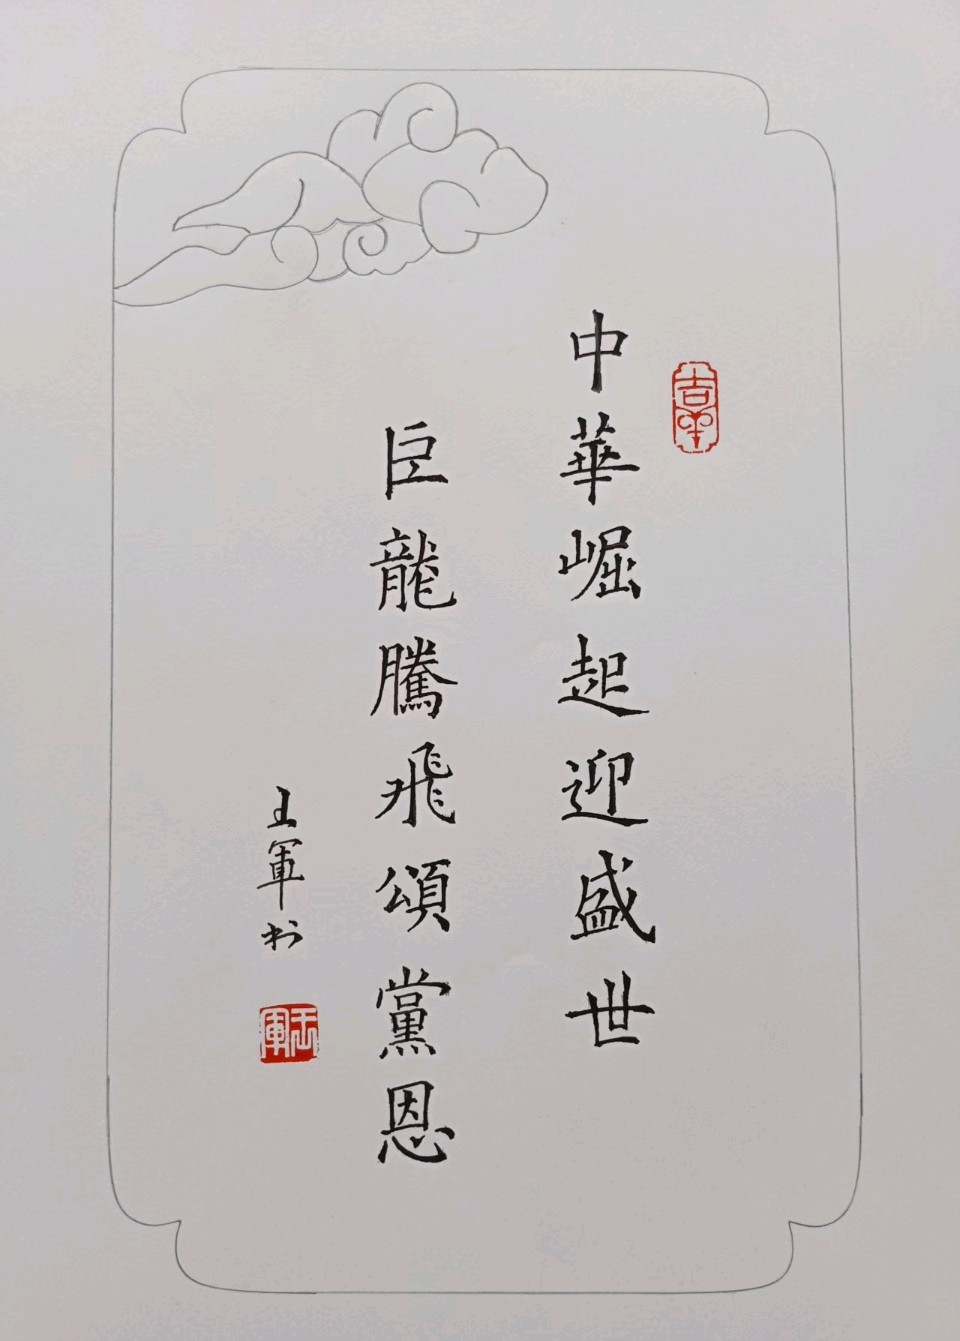 中華崛起迎盛世
巨龍騰飛頌黨恩
王軍书
王軍